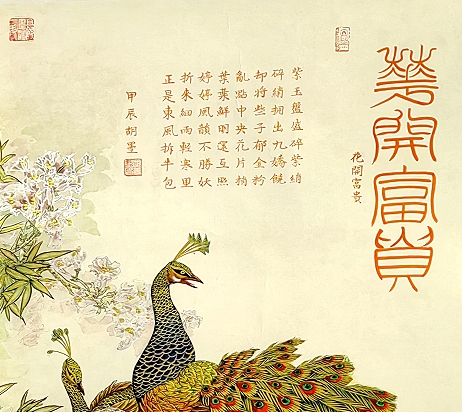 華開富貴
花開富貴
紫玉盤盛碎紫綃
碎綃擁出九嬌饒
却將些子郁金粉
亂點中央花片梢
葉葉鮮明還互照
婷婷風韻不勝妖
折來細雨輕寒里
正是東風拆半包
甲辰胡墨